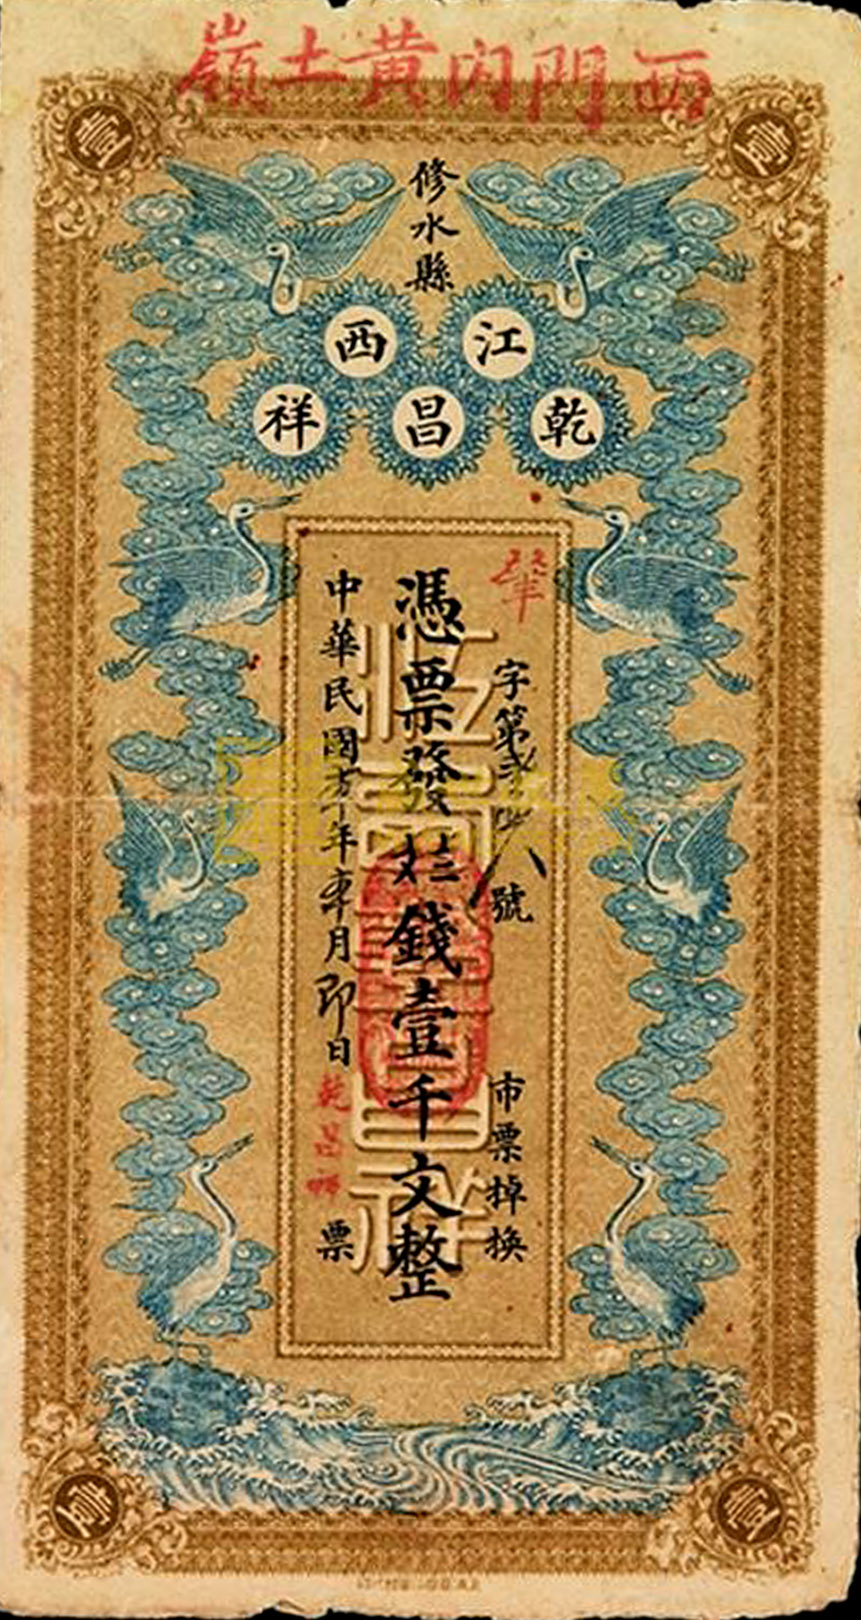 西門內黃土嶺
壹
壹
修水縣
江西
乾昌祥
字第 八號
市票掉換
憑票發 錢壹千文整
中華民國 年 月即日
乾昌祥票
壹
壹